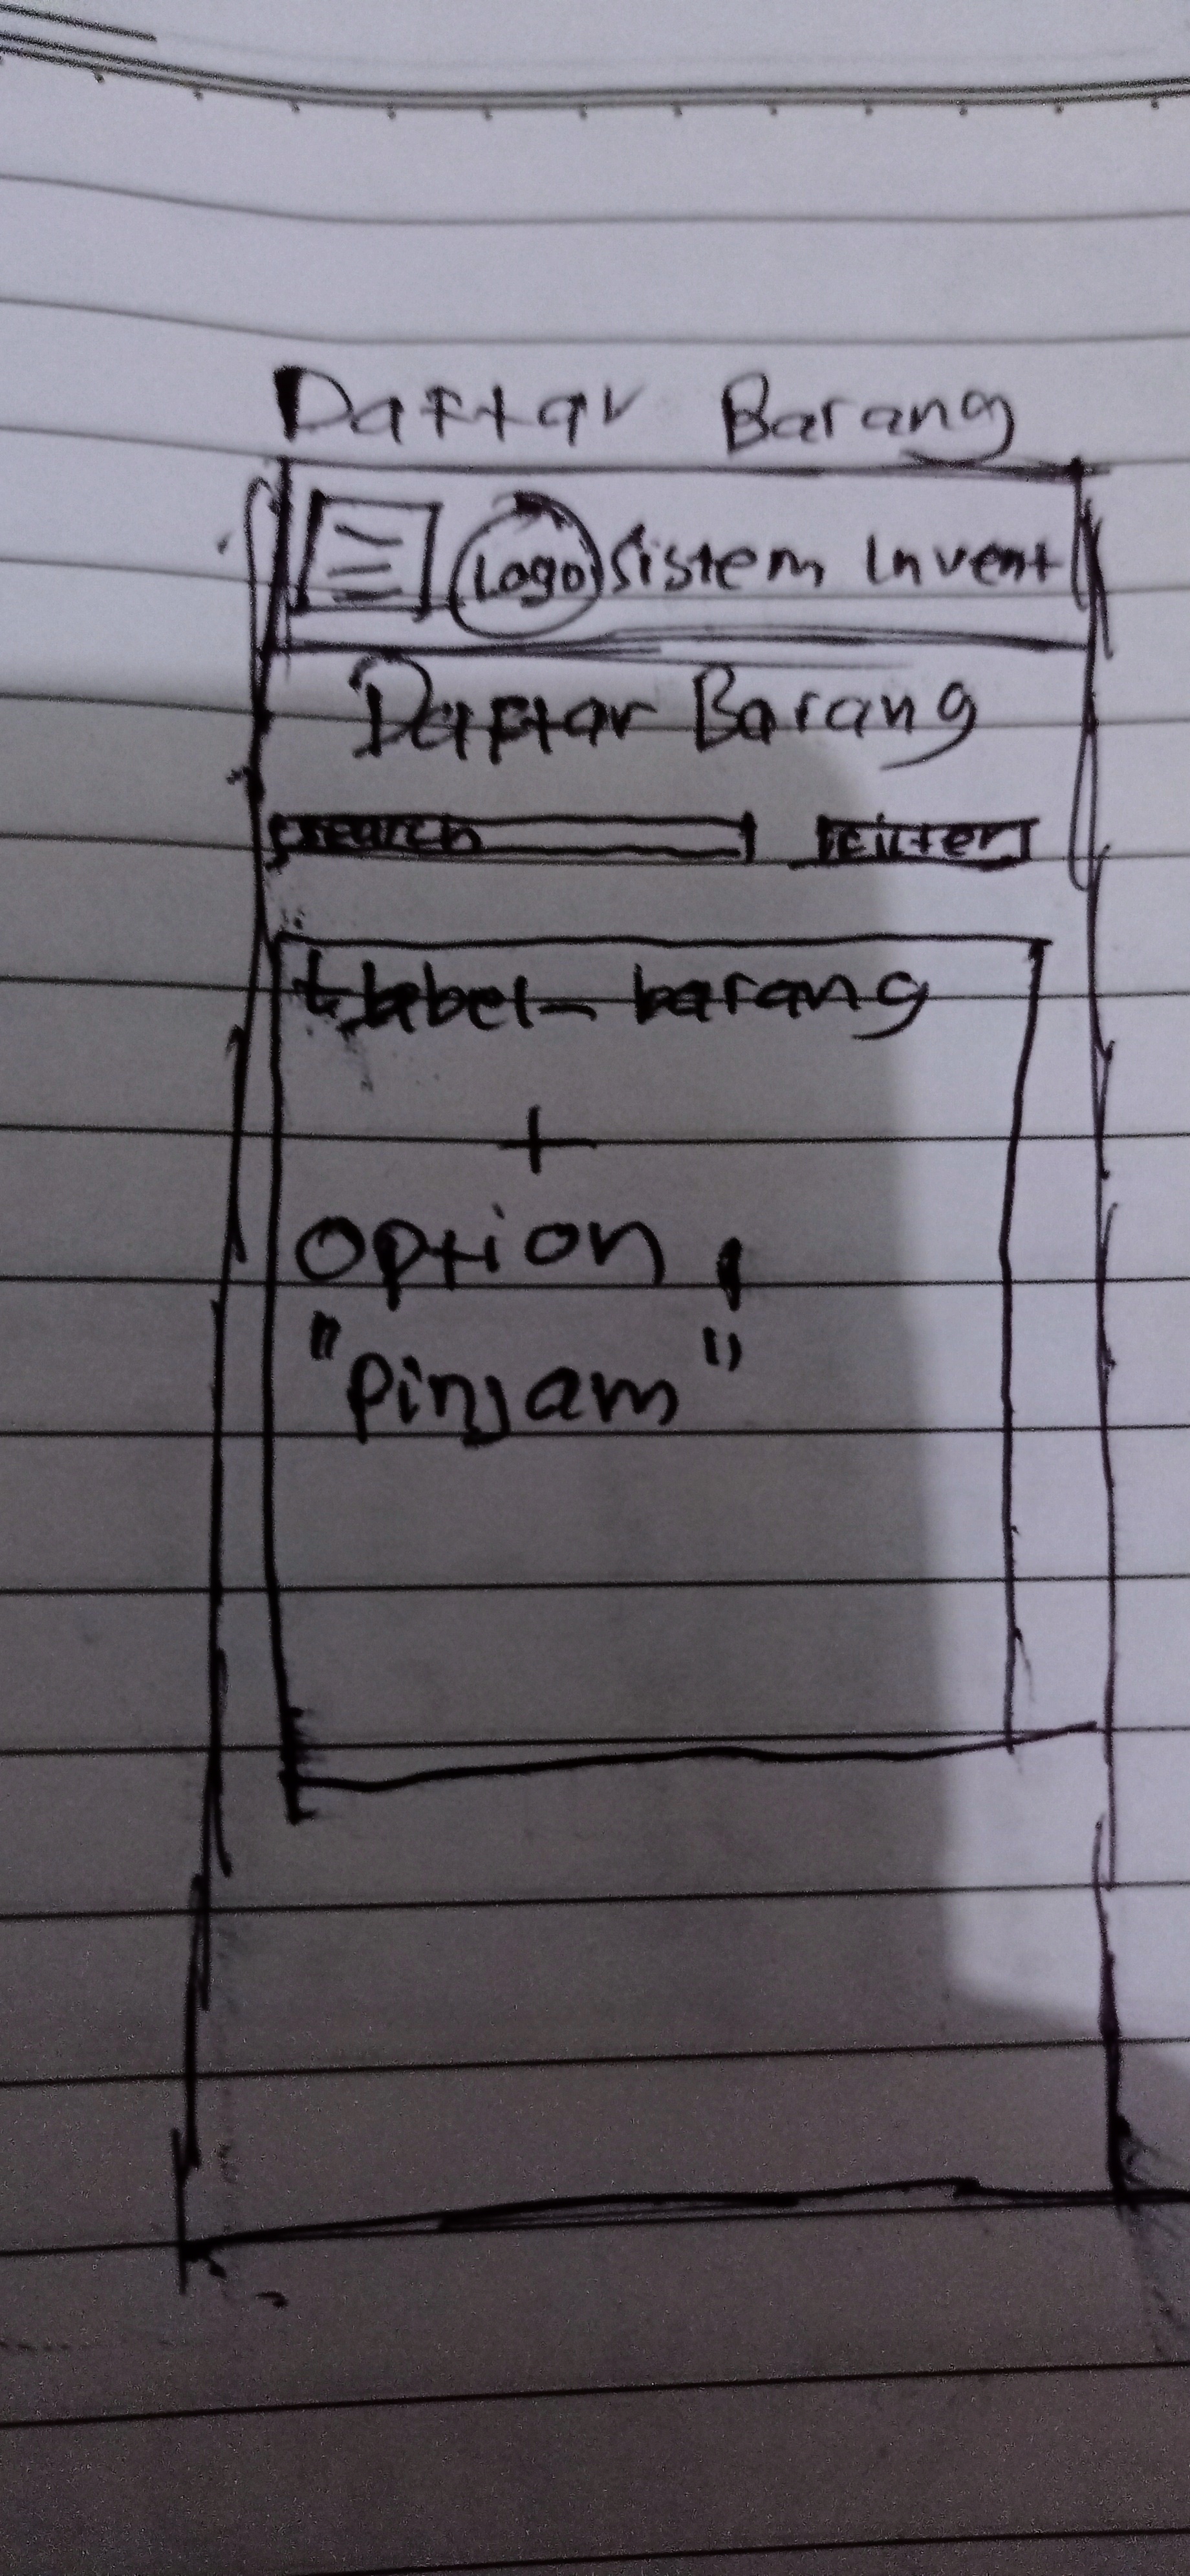 Daftar Barang
Logo Sistem Invent
Daftar Barang
search Filter
tabel-barang
+
option
"Pinjam"